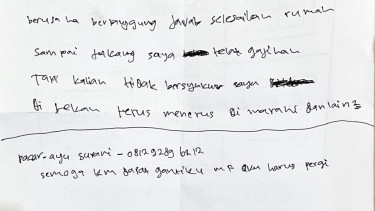 berusaha bertanggung jawab selesaikan rumah
sampai tukang saya telat gajihan
Tapi kalian tidak bersyukur saya
Di tekan terus menerus Di marahi dan lain2
pacar - ayu suryani - 0812 9289 6212
semoga km dapat gantiku mf aku harus pergi